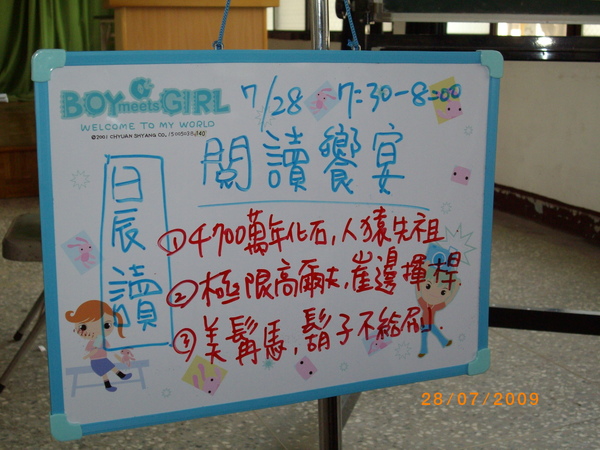 BOY meets GIRL
WELCOME TO MY WORLD
©2001 CHYUAN SHYANG CO.,
7/28 7:30-8:00
閱讀饗宴
晨讀
①4700萬年化石,人猿先祖
②極限高爾夫,崖邊揮桿
③美髯馬,鬍子不給
28/07/2009